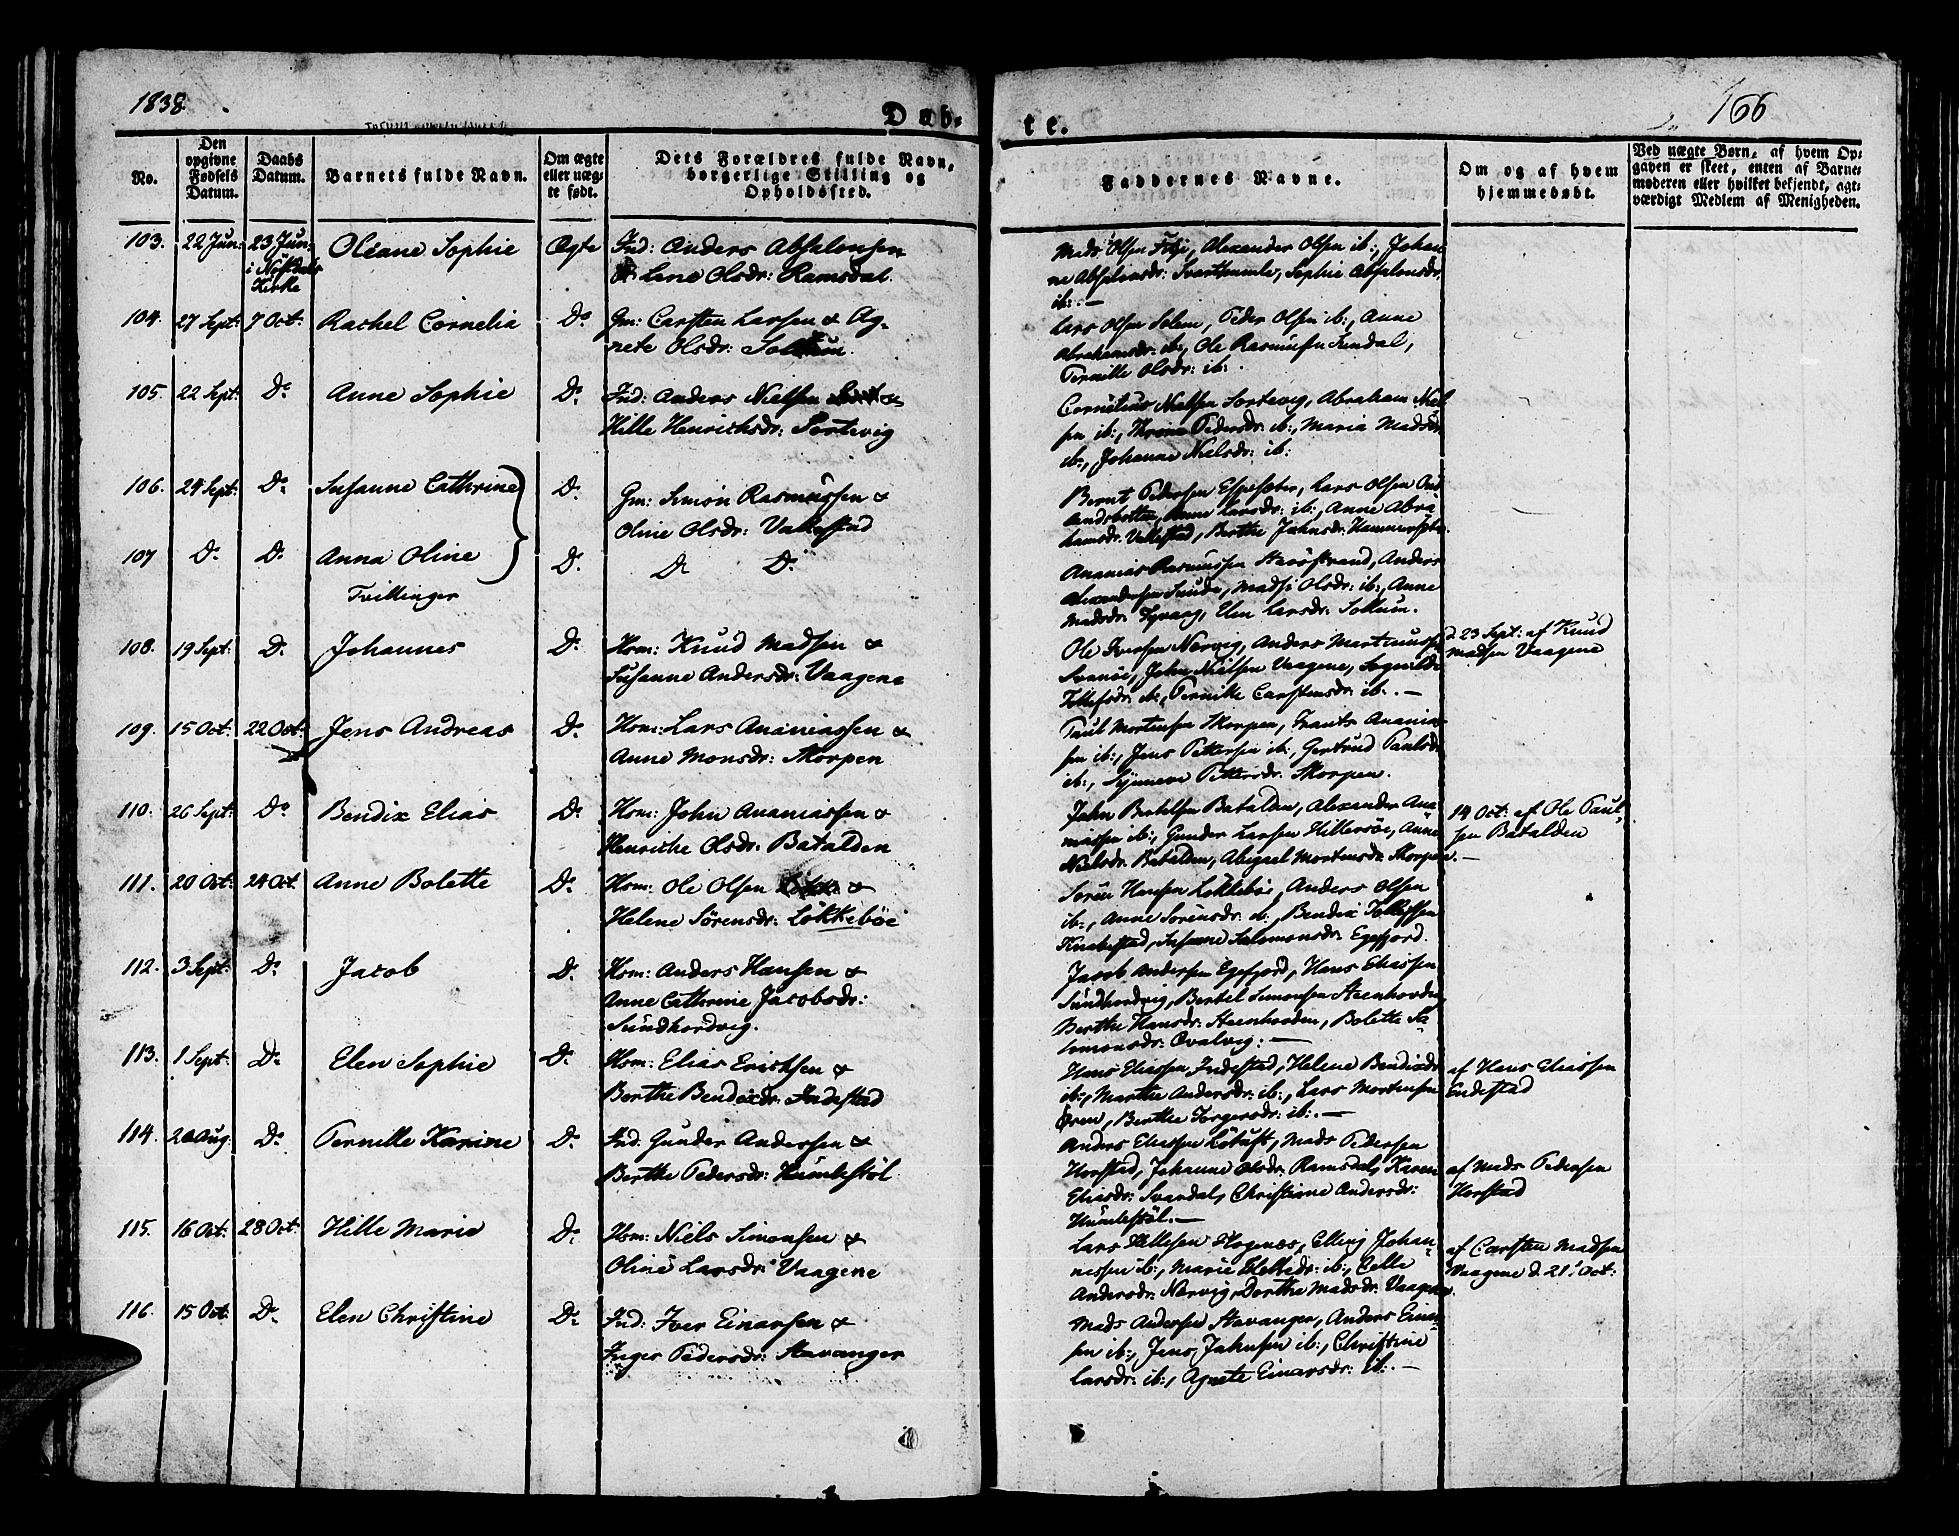 1838.
Døb-
te.
166
No.
Den opgivne Fødsels Datum.
Daabs Datum.
Barnets fulde Navn.
Om ægte eller uægte født.
Dets Forældres fulde Navn, borgerlige Stilling og Opholdssted.
Faddernes Navne.
Om og af hvem hjemmedøbt.
Ved uægte Børn, af hvem Opgaven er skeet, enten af Barnemoderen eller hvilket bekjendt, agtværdigt Medlem af Menigheden.
103. 22 Jun: 23 Jun: Oleane Sophie Ægte Ind: Anders Absalonsen
Kirke & Lene Olsdr: Ramsdal.
Mads Olsen, Alexander Olsen ib:, Johan
ne Absalonsdr: Svarthumle, Sophie Absalonsdr:
ib:. —
104. 27 Sept: 7 Oct: Rachel Cornelia Do Gm: Carsten Larsen & Ag-
nete Olsdr:
Lars Olsen Solem, Peder Olsen ib:, Anne
Abrahamsdr: ib:, Ole Rasmussen Sundal,
Pernille Olsdr: ib:.
105. 22 Sept: Do Anne Sophie Do Ind: Anders Nielsen &
Hille Henrichsdr: Sortevig
Cornelius Nielsen Sortevig, Abraham Niel
sen ib:, Pedersdr: ib:, Maria Madsdr:
ib:, Johanne Nielsdr: ib:
106. 24 Sept: Do Susanne Cathrine Do Gm: Simon Rasmussen &
Oline Olsdr: Vallestad
Bernt Pedersen Espeseter, Lars Olsen
Anne Larsdr: ib:, Anne Abra
hamsdr: Vallestad, Berthe Johnsdr:
107 Do Do Anna Oline Do Do Do
Tvillinger
Ananias Rasmussen, Anders
Alexandersen Sunde, Madsi Olsdr: ib:, Anne
Madsdr:, Elen Larsdr:
108. 19 Sept: Do Johannes Do Hsm: Knud Madsen &
Susanne Andersdr: Vaagene
Ole Iversen Nervig, Anders
Svanöe, John Nielsen Vaagene,
Tollefsdr: ib:, Pernille Carstensdr: ib:. —
d. 23 Sept: af Knud
Madsen Vaagene
109. 15 Oct: 22 Oct: Jens Andreas Do Hsm: Lars Ananiassen &
Anne Monsdr: Skorpen
Paul Mortensen Skorpen, Frants Anania
sen ib:, Jens Pettersen ib:, Gertrud Paulsdr:
ib:, Synneve Pettersdr: Skorpen.
110. 26 Sept: Do Bendix Elias Do Hsm: John Ananiassen &
Henriche Olsdr: Batalden
John Bertelsen Batalden, Alexander Ana
niassen ib:, Gunder Larsen Hillersöe, Anne
Nielsdr: Batalden, Abigael Mortensdr: Skorpen. —
14 Oct: af Ole Paul-
sen Batalden
111. 20 Oct: 24 Oct: Anne Bolette Do Hsm: Ole Olsen &
Helene Sörensdr: Lökkeböe
Sören Hansen Lökkeböe, Anders Olsen
ib:, Anne Sörensdr: ib:, Bendix Tollefsen
Knabestad, Susanne Salomonsdr: Egefjord.
112. 3 Sept: Do Jacob Do Hsm: Anders Hansen &
Anne Cathrine Jacobsdr:
Sundhordvig.
Jacob Andersen Egefjord, Hans Eliassen
Sundhordvig, Bertel Simonsen Steenhovden,
Berthe Hansdr: Steenhovden, Bolette Si
monsdr: Qvalvig. —
113. 1 Sept: Do Elen Sophie Do Hsm: Elias Erichsen &
Berthe Bendixdr: Indestad
Hans Eliassen Indestad, Helene Bendixdr:
ib:, Marthe Andersdr: ib:, Lars Mortensen
Berthe Torgersdr: ib:. —
af Hans Eliassen
Endestad
114. 20 Aug: Do Pernille Karine Do Ind: Gunder Andersen &
Berthe Pedersdr: Humlestöl
Anders Eliassen Lötuft, Mads Pedersen
Horstad, Johanne Olsdr: Ramsdal, Karen
Eliasdr: Svardal, Christiane Andersdr:
Humlestöl. —
af Mads Pedersen
Horstad
115. 16 Oct: 28 Oct: Hille Marie Do Hsm: Niels Simonsen &
Oline Larsdr: Vaagene
Lars Hogenæs, Elling Johan-
nessen ib:, Marie ib:,
Andersdr: Nervig, Dorthe Madsdr: Vaagene.
af Carsten Madsen
Vaagene d. 21 Oct:
116. 15 Oct: Do Elen Christine Do Ind: Iver Einarsen &
Inger Pedersdr: Stavanger
Mads Andersen Stavanger, Anders Einar
sen ib:, Jens Johnsen ib:, Christine
Larsdr: ib:, Agnete Einarsdr: ib:. —